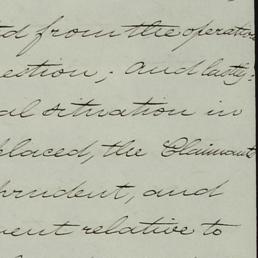 ed from the operation
estion; and lastly
al situation in
placed, the Claimants
prudent, and
ment relative to